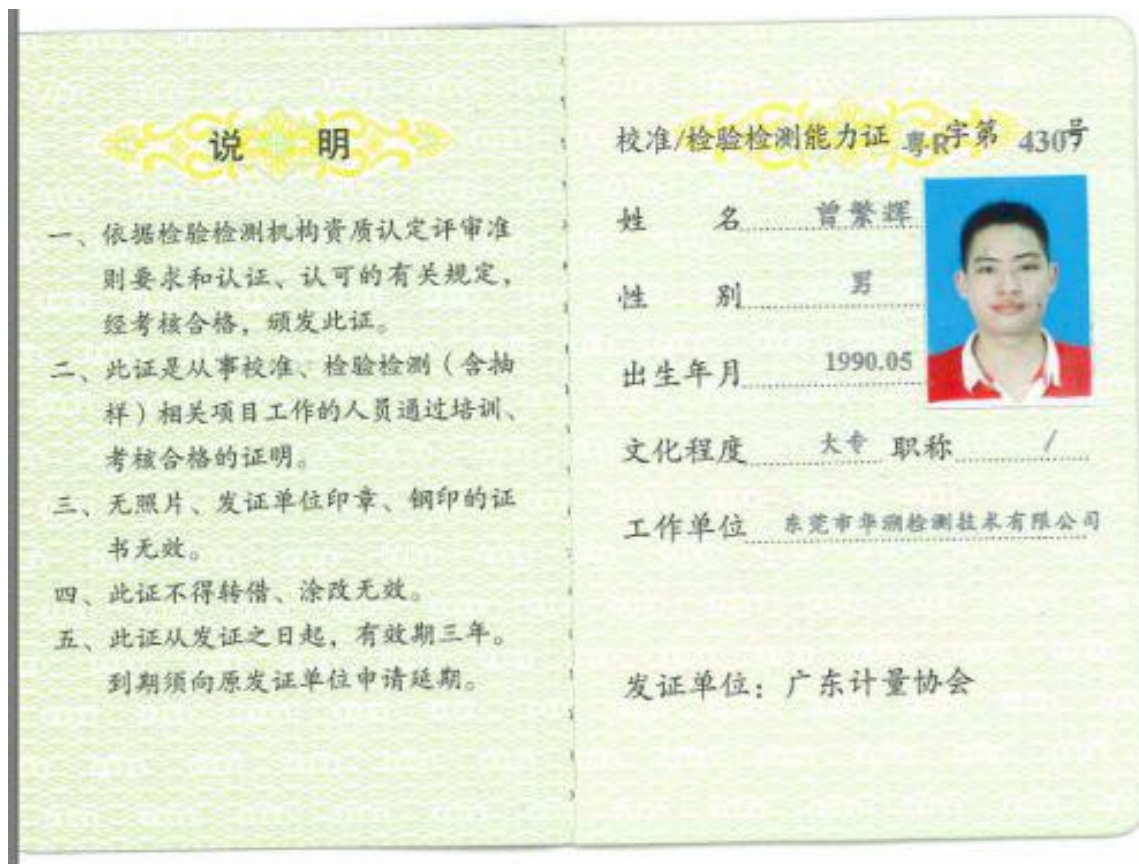 说 明
一、依据检验检测机构资质认定评审准
则要求和认证、认可的有关规定，
经考核合格，颁发此证。
二、此证是从事校准、检验检测（含抽
样）相关项目工作的人员通过培训、
考核合格的证明。
三、无照片、发证单位印章、钢印的证
书无效。
四、此证不得转借、涂改无效。
五、此证从发证之日起，有效期三年。
到期须向原发证单位申请延期。
校准/检验检测能力证 粤R字第 430号
姓 名 曾繁辉
性 别 男
出生年月 1990.05
文化程度 大专 职称 /
工作单位 东莞市华溯检测技术有限公司
发证单位：广东计量协会